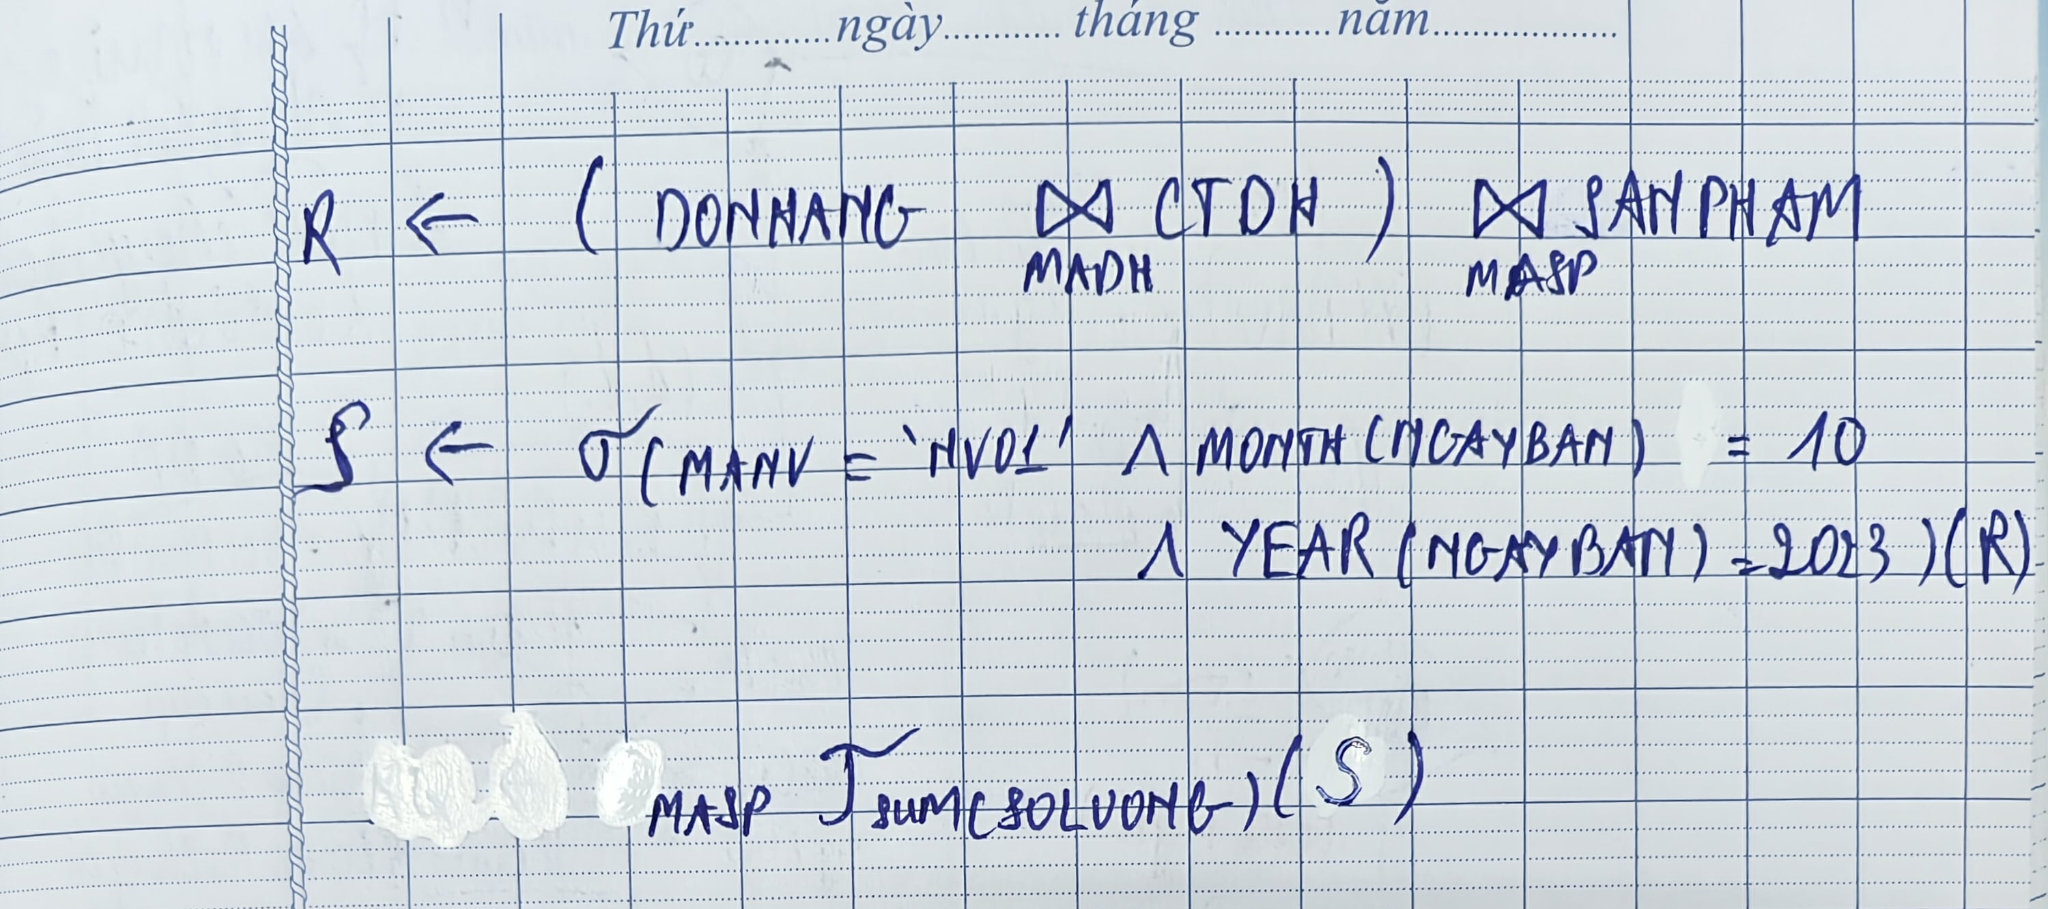 Thứ.............ngày........... tháng ...........năm..................
R ← ( DONHANG ⋈ CTDH ) ⋈ SANPHAM
MADH MASP
S ← σ (MANV = 'NV01' ∧ MONTH (NGAYBAN) = 10
∧ YEAR (NGAYBAN) = 2023 ) (R)
MASP ℑ SUM(SOLUONG) ( S )